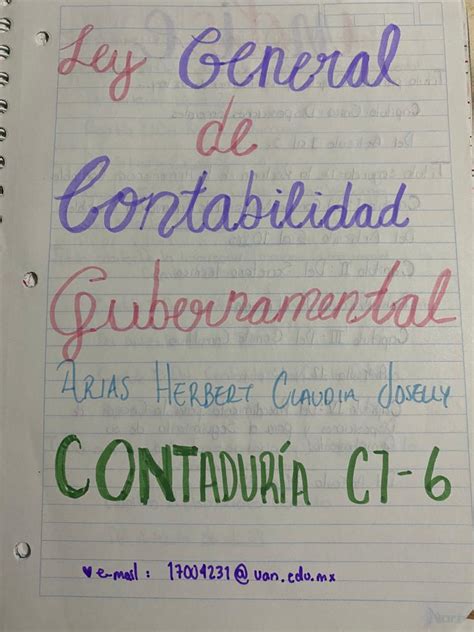 Ley General
de
Contabilidad
Gubernamental
ARIAS HERBERT CLAUDIA JOSELLY
CONTADURÍA C7-6
♥ e-mail : 17004231@uan.edu.mx